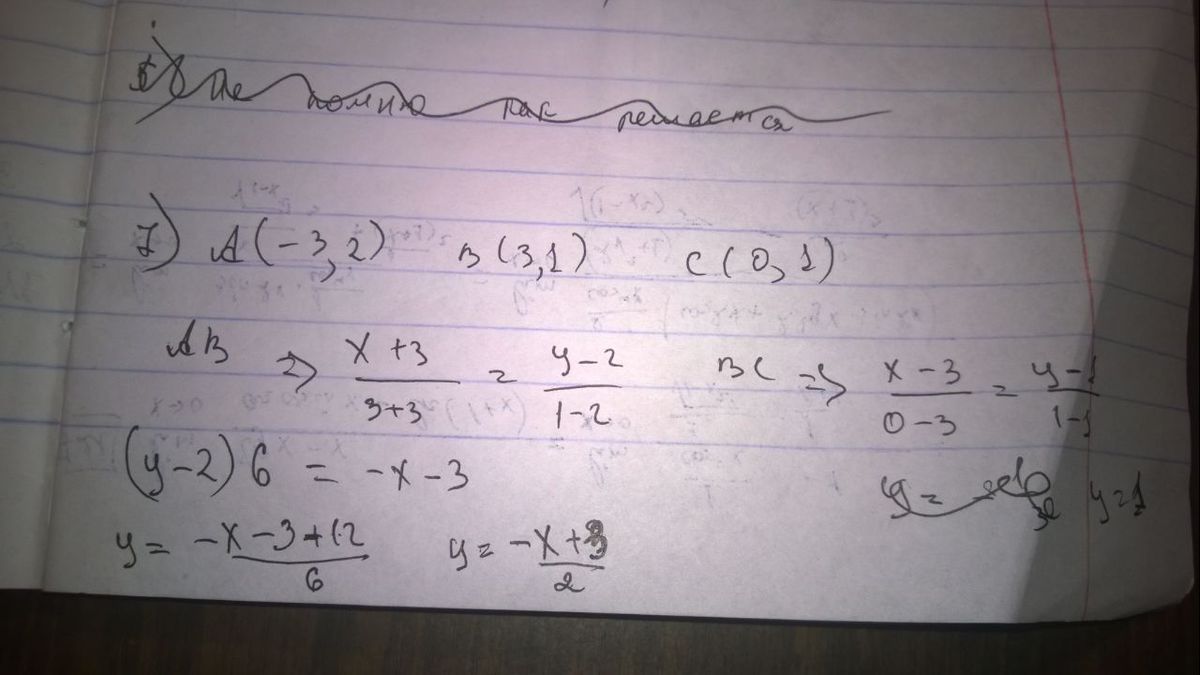 Не помню как решается
7) A(-3,2) B(3,1) C(0,1)
AB => (x+3)/(3+3) = (y-2)/(1-2) BC => (x-3)/(0-3) = (y-1)/(1-1)
(y-2)6 = -x-3
y= y=1
y= (-x-3+12)/6 y= (-x+3)/2